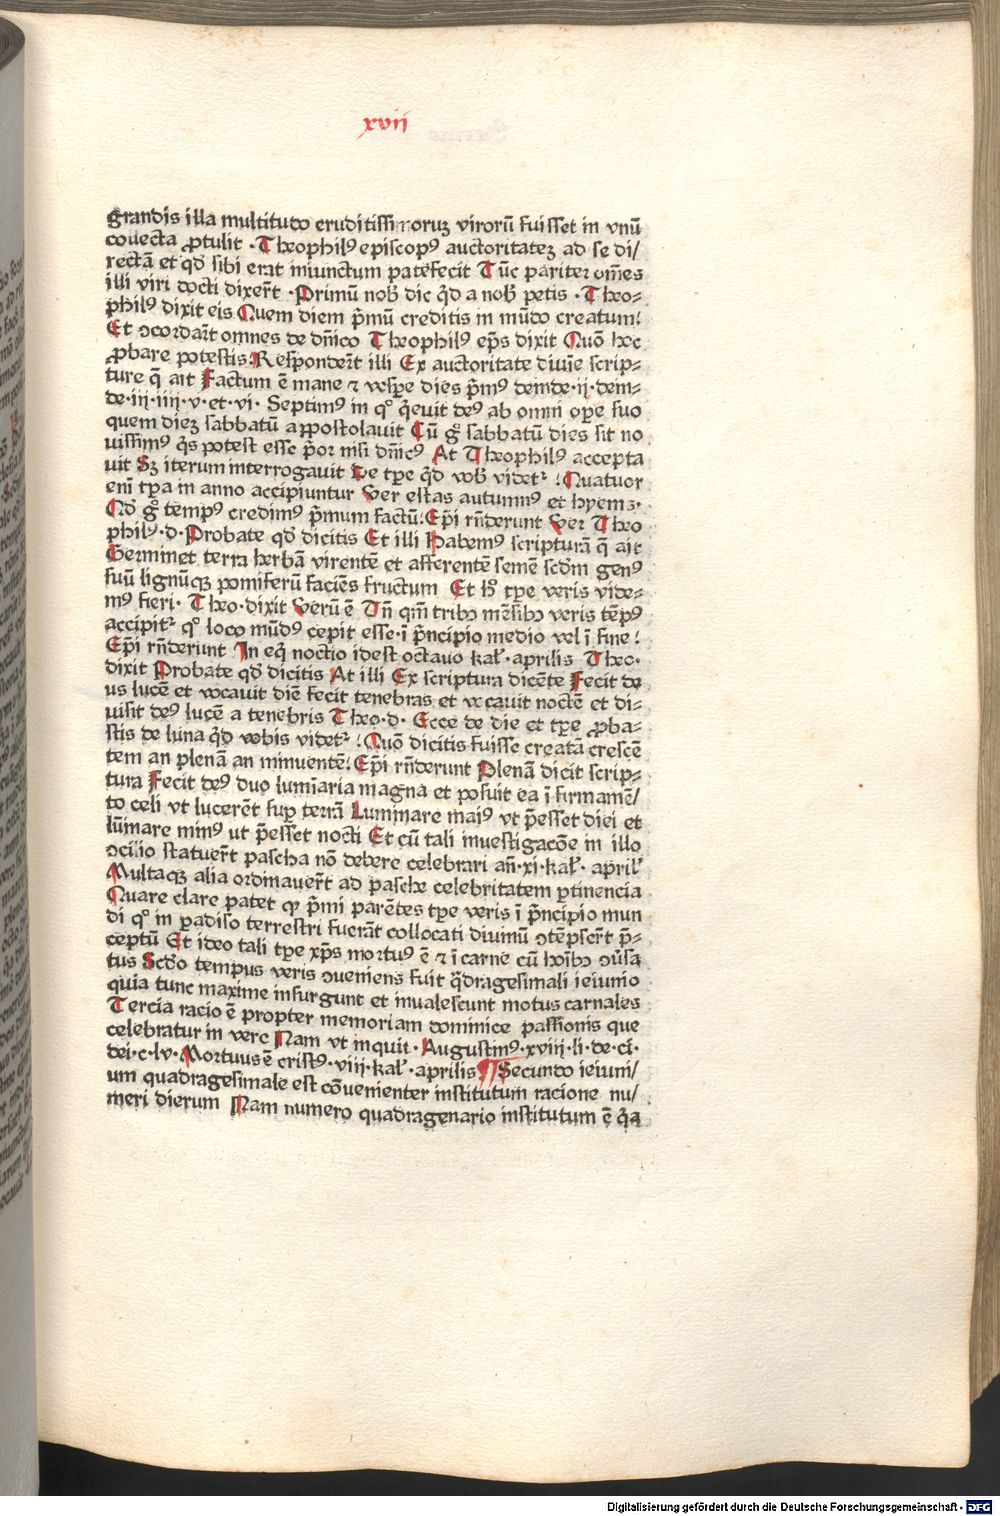 xvij
grandis illa multitudo eruditissimoruꝫ virorū fuisset in vnū
cōuecta ꝓtulit ·Theophilꝰ episcopꝰ auctoritateꝫ ad se di/
rectā et qđ sibi erat iniunctum patefecit Tūc pariter om̄es
illi viri docti dixer̄t ·Primū nob̄ dic q̄d a nob̄ petis ·Theo⸗
philꝰ dixit eis Quem diem p̄mū creditis in mūdo creatum?
Et ↄcordar̄t omnes de dn̄ico Theophilꝰ ep̄s dixit Quō hec
ꝓbare potestis? Responder̄t illi Ex auctoritate diuīe scrip⸗
ture q̄ ait Factum ē mane ⁊ vesp̄e dies p̄mꝰ deinde·ij·dein⸗
de·iij·iiij·v·et·vi· Septimꝰ in qͦ q̄euit deꝰ ab omni oꝑe suo
quem dieꝫ sabbatū appostolauit Cū gͦ sabbatū dies sit no
uissimꝰ q̄s potest esse p̄or nisi dn̄icꝰ At Theophilꝰ accepta
uit Sꝫ iterum interrogauit De tꝑe q̄d vob̄ videtᷣ? Quatuor
eni᷑ tꝑa in anno accipiuntur Ver estas autumnꝰ et hyemꝫ·
Qđ gͦ tempꝰ credimꝰ p̄mum factū? Ep̄i rn̄derunt Ver Theo
philꝰ·d·Probate qđ dicitis Et illi Habemꝰ scripturā q̄ ait
Germinet terra herbā virentē et afferentē semē scd̄m genꝰ
suū lignūqꝫ pomiferū faciēs fructum Et hͦ tꝑe veris vide⸗
mꝰ fieri· Theo·dixit Verū ē Vn̄ qm̄ tribꝰ mēsibꝰ veris tēpꝰ
accipitᷣ qͦ loco mūdꝰ cepit esse·ī p̄ncipio medio vel ī fine?
Ep̄i rn̄derunt In eq̄noctio idest octauo kal̄·aprilis Theo·
dixit Probate qđ dicitis At illi Ex scriptura dicēte Fecit de
us lucē et vocauit diē fecit tenebras et vocauit noctē et di⸗
uisit deꝰ lucē a tenebris Theo·d· Ecce de die et tꝑe ꝓba⸗
stis de luna q̄d vobis videtᷣ? Quō dicitis fuisse creatā crescē
tem an plenā an minuentē? Ep̄i rn̄derunt Plenā dicit scrip⸗
tura Fecit deꝰ duo lumīaria magna et posuit ea ī firmamē/
to celi vt lucerēt suꝑ terrā Luminare maiꝰ vt p̄esset diei et
lūinare minꝰ ut p̄esset nocti Et cū tali inuestigacōe in illo
ↄcilio statuer̄t pascha nō debere celebrari añ·xi·kal̄·april̄
Multaqꝫ alia ordinauer̄t ad pasche celebritatem ꝑtinencia
Quare clare patet ꝙ p̄mi parētes tꝑe veris ī p̄ncipio mun
di qͦ in ꝑadiso terrestri fuerāt collocati diuinū ↄtēpser̄t p̄⸗
ceptū Et ideo tali tꝑe xp̄s mortuꝰ ē ⁊ ī carne cū hoībꝰ ↄuersa
tus Scd̄o tempus veris ↄueniens fuit q̄dragesimali ieiunio
quia tunc maxime insurgunt et inualescunt motus carnales
Tercia racio ē propter memoriam dominice passionis que
celebratur in vere Nam vt inquit·Augustinꝰ·xviij·li·de·ci·
dei·c·lv·Mortuus ē cristꝰ·viij·kal̄·aprilis ¶ Secundo ieiuni/
um quadragesimale est cōuenienter institutum racione nu/
meri dierum Nam numero quadragenario institutum ē q̄a
Digitalisierung gefördert durch die Deutsche Forschungsgemeinschaft · DFG